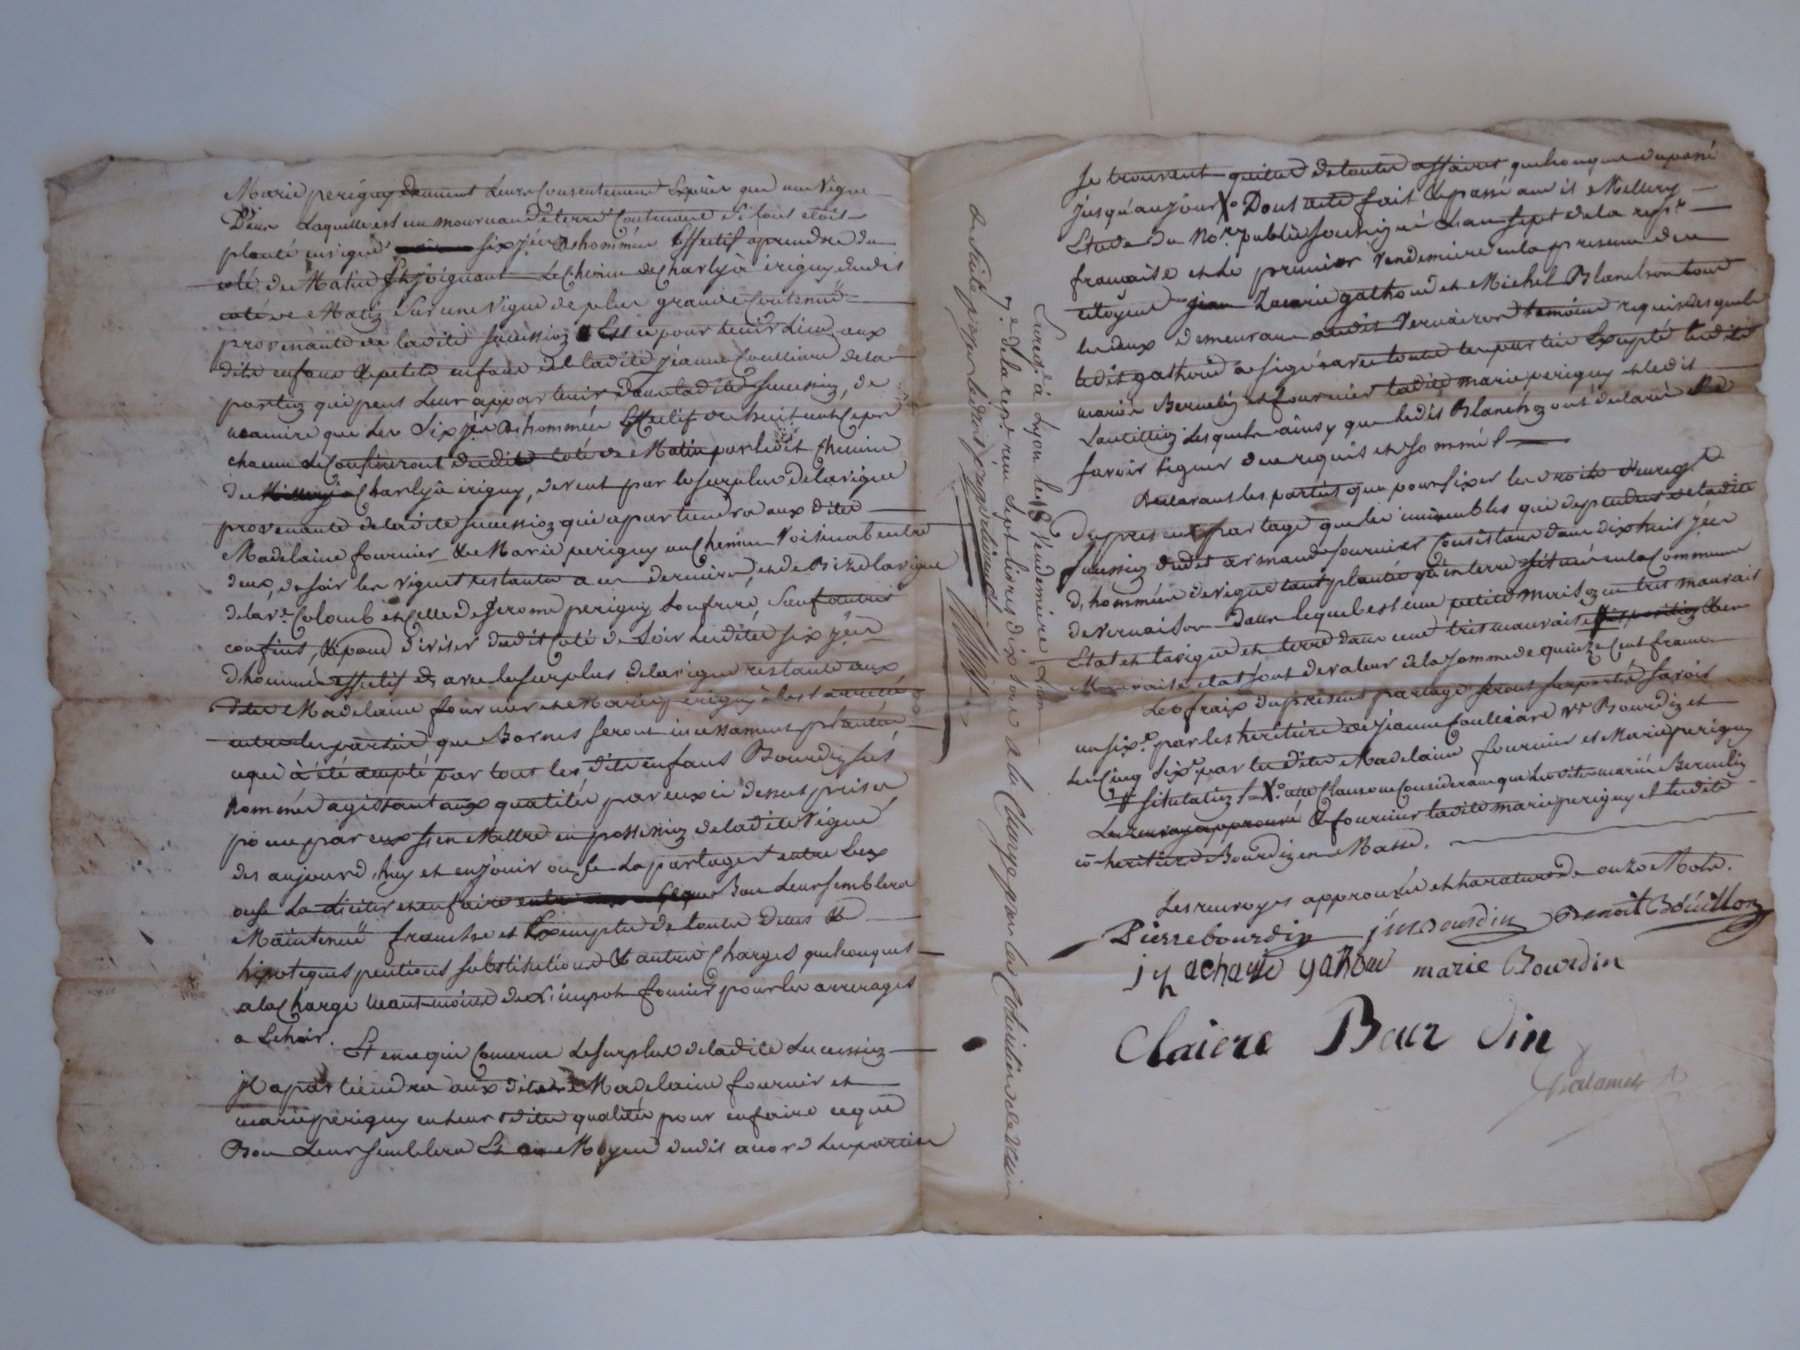 Marie perigny donnent leurs consentement Expres que une Vigne
Dans laquelle est un mourveau de terre Contenant Si tout etoit
planté en vigne six j.ées d'hommée Effectif a prendre du
coté de Matin Et joignant Le Chemin de Charly à irigny dudit
coté de Matin Sur une Vigne de plus grande Contenue
provenante de ladite succession Est ce pour tenir Lieu aux
dits enfans & petits enfans de ladite jeanne foulliare de la
portion qui peut Leur appartenir dans ladite succession, de
maniere que les Six j.ées d'hommée Effectif de huit cent Cepts
chacune se Confineront dudit Coté de Matin par ledit chemin
de Charly à irigny, de vent par le surplus de la vigne
provenante de ladite succession qui apartiendra aux dites
Madelaine fournier & Marie perigny un Chemin Voisinal entre
deux, de soir les vignes restantes a ces dernieres, et de Bize la vigne
de la v.e Colomb et celle de jerome perigny, Soufriré, Sauf autres
confins, & pour diviser dudit Coté de Soir lesdites six j.ées
d'hommée effectif de avec le surplus de la vigne restante aux
dites Madelaine fournier et Marie perigny
entre les parties que Bornes seront incessament plantées,
ce qui à été accepté par tous les dits enfans Bourdin sus
nommés agissant aux qualités par eux ci dessus prises
pour par eux s'en Mettre en possession de ladite Vigne
des aujourd'huy et en jouir ou se La partager entre Eux
ou se La liciter et en faire ce que Bon Leur semblera
Maintenue franche et Exempte de toutes dettes &
hipoteques pentions substitutions & autres Charges quelconques
a la Charge neant-moins de L'impot foncier pour les arrerages
a Echoir.
Et en ce qui Concerne Le surplus de ladite succession
jl apartiendra aux dites Madelaine fournier et
marie perigny en leurs dites qualités pour en faire ce que
Bon Leur semblera Et au Moyen dudit acord Les parties
Enreg.é à Lyon le 8 Vendemiaire L'an
7.e de la rep. reçu Sept livres dix sous a la Charge par les Cohéritiers de venir
de suite payer le droit proportionnel
Se trouvent quittes de toutes affaires quelconques du passé
jusqu'au jour X.o Dont acte fait & passé au dit Millery
Etude du No.re public soussigné L'an sept de la rep.e
francaise et le premier Vendemiaire en la presence des
citoyens jean Zacarie gathoud et Michel Blanchon tous
les deux demeurant audit Vernaison temoins requis lesquels
ledit gathoud a signé avec toutes les parties Excepté lesdits
mariés Bernelin et fournier ladite marie perigny et ledit
Lautillion lesquels ainsy que ledit Blanchon ont declaré ne
savoir signer de ce requis et sommés
Declarant les parties que pour fixer les droits d'enreg.t
du present partage que les immeubles qui dependent de ladite
succession dudit armand fournier Consistant dans dix huit j.ées
d'hommée de vigne tant plantée qu'en terre située en la Commune
de vernaison dans lequel est une petite maison en tres mauvais
Etat et la vigne et terre dans une tres mauvaise position & en
Mauvais etat sont de valeur de la somme de quinze Cent francs
Les fraix du present partage seront suportés savoir
un six.e par les heritiers de jeanne foulliare v.e Bourdin et
les Cinq Six.e par lesdites Madelaine fournier et Marie perigny
situation X.o aux Clauses Considerant que lesdits mariés Bernelin
& fournier ladite marie perigny et lesdits
co-heritiers Bourdin en Masse.
Les renvoys approuvés et la rature de onze Mots.
Pierre bourdin j m Bourdin Benoit Boüillon
jn zacharie gathou marie Bourdin
Claiere Bour din